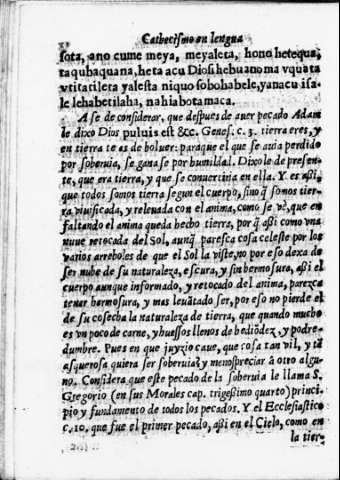 Cathecismo en lengua
sota, ano cume meya, meyaleta, hono hetequa,
taqubaquana, heta acu Diosi hebuano ma vquata
vtitatileta yalesta niquo sobohabele, yanacu isa-
le lehabetilaha, nahiabotamaca.
A se de considerar, que despues de auer pecado Adam
le dixo Dios puluis est &c. Genes. c. 3. tierra eres, y
en tierra te as de boluer: paraque el que se auia perdido
por soberuia, se gana se por humildad. Dixole de presen-
te, que era tierra, y que se conuertiria en ella. Y es assi,
que todos somos tierra segun el cuerpo, sino q̃ somos tier-
ra viuificada, y releuada con el anima, como se vè, que en
faltando el anima queda hecho tierra, por q̃ assi como vna
nuue retocada del Sol, aunq̃ paresca cosa celeste por los
varios arreboles de que el Sol la viste, no por eso dexa de
ser nube de su naturaleza, escura, y sin hermosura, assi el
cuerpo aunque informado, y retocado del anima, parezca
tener hermosura, y mas leuãtado ser, por eso no pierde el
de su cosecha la naturaleza de tierra, que quando mucho
es vn poco de carne, y huessos llenos de hediõdez, y podre-
dumbre. Pues en que juyzio caue, que cosa tan vil, y tã
asquerosa quiera ser soberuiar, y menospreciar à otro algu-
no. Considera que este pecado de la soberuia le llama S.
Gregorio (en sus Morales cap. trigessimo quarto) princi-
pio y fundamento de todos los pecados. Y el Ecclesiastico
c. 10. que fue el primer pecado, assi en el Cielo, como en
la tier-